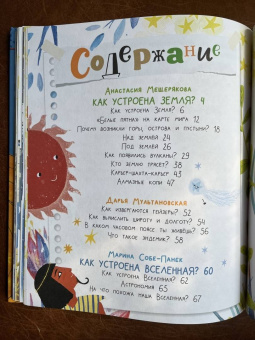 Содержание
Анастасия Мещерякова
КАК УСТРОЕНА ЗЕМЛЯ? 4
Как устроена Земля? 6
«Белые пятна» на карте мира 12
Почему возникли горы, острова и пустыни? 18
Над землёй 24
Под землёй 26
Как появились вулканы? 29
Кто землю трясёт? 38
Карьер-шахта-карьер 43
Алмазные копи 47
Дарья Мультановская
Как извергаются гейзеры? 52
Как вычислить широту и долготу? 54
В каком часовом поясе ты живёшь? 56
Что такое эндемик? 58
Марина Собе-Панек
КАК УСТРОЕНА ВСЕЛЕННАЯ? 60
Как устроена Вселенная? 62
Астрономия 65
На что похожа наша Вселенная? 67